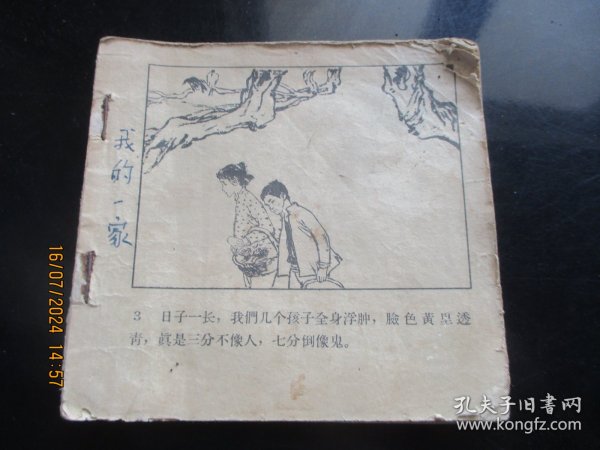 我的一家
3 日子一长，我們几个孩子全身浮肿，臉色黄里透
青，眞是三分不像人，七分倒像鬼。
16/07/2024 14:57
孔夫子旧書网
www.kongfz.com